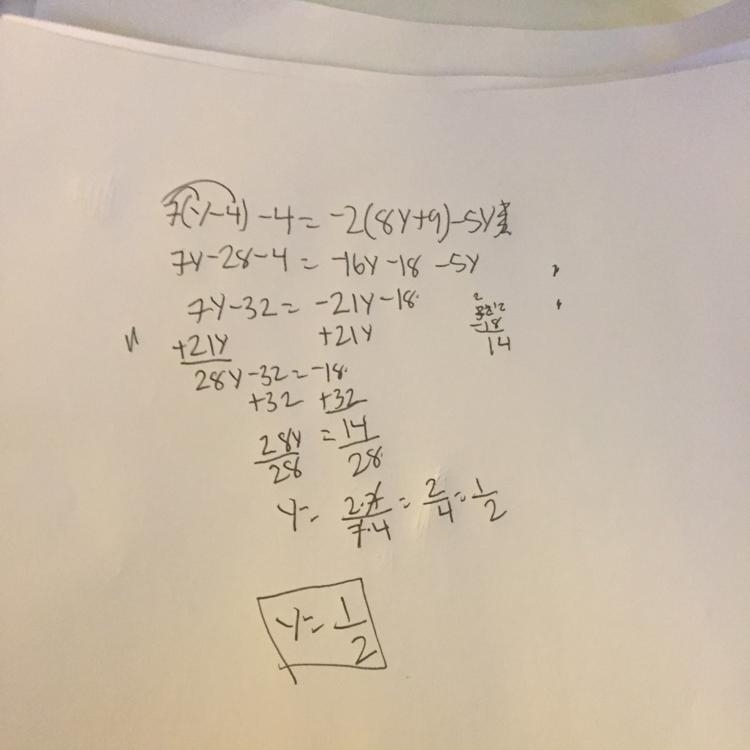 7(y-4)-4 = -2(8y+9)-5y
7y-28-4 = -16y-18-5y
7y-32 = -21y-18
+21y +21y
28y-32=-18
+32 +32
28y/28 = 14/28
y= 2·7/7·4 = 2/4 = 1/2
y=1/2
-18
14